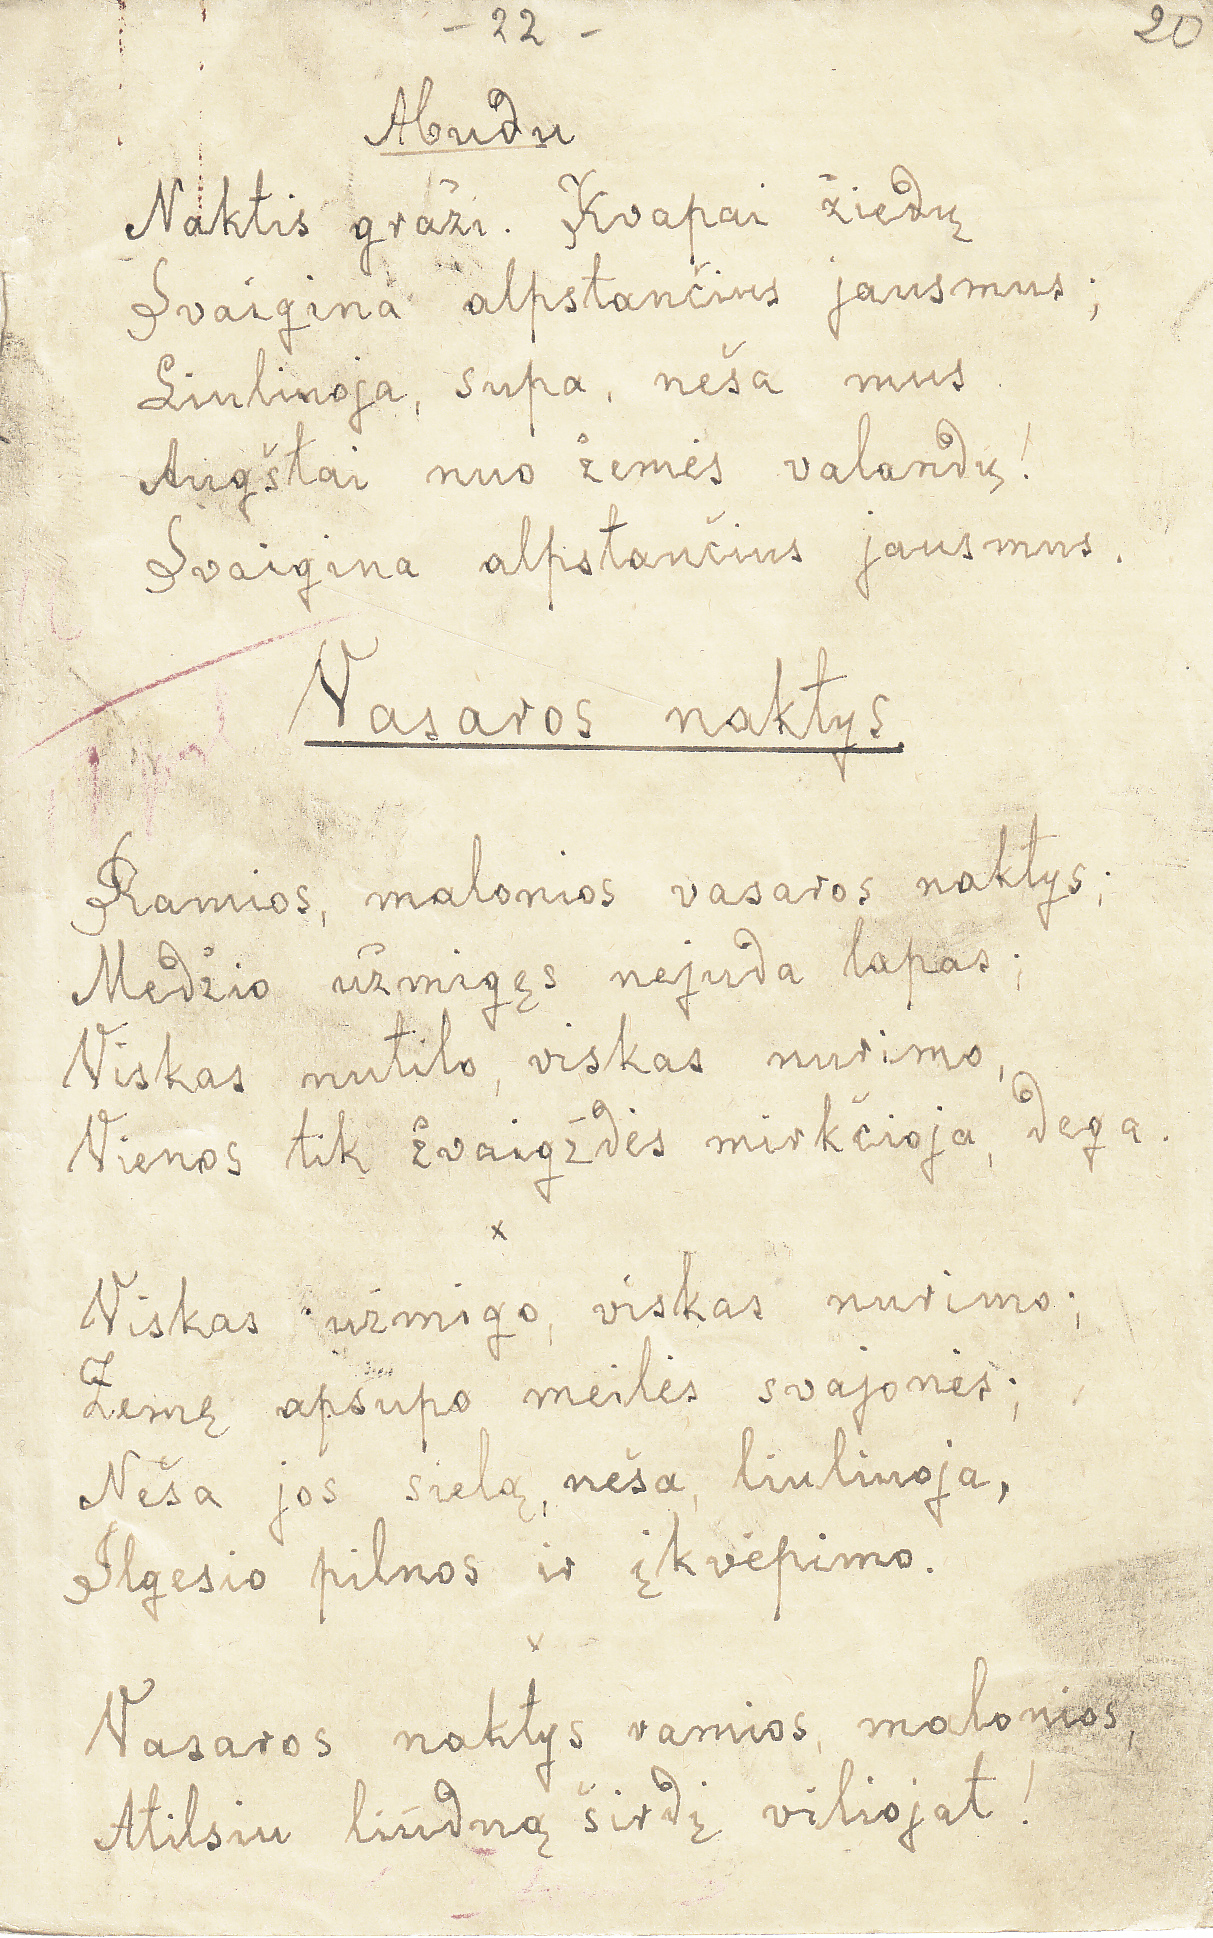 - 22 -
20
Abudu
Naktis graži. Kvapai žiedų
Svaigina alpstančius jausmus;
Liuliuoja, supa, neša mus
Augštai nuo žemės valandų!
Svaigina alpstančius jausmus.
Vasaros naktys.
Ramios, malonios vasaros naktys;
Medžio užmigęs nejuda lapas;
Viskas nutilo, viskas nurimo,
Vienos tik žvaigždės mirkčioja, dega.
x
Viskas užmigo, viskas nurimo;
Žemę apsupo meilės svajonės;
Neša jos sielą, neša, liuliuoja,
Ilgesio pilnos ir įkvėpimo.
x
Vasaros naktys ramios, malonios,
Atilsiu liūdną širdį viliojat!